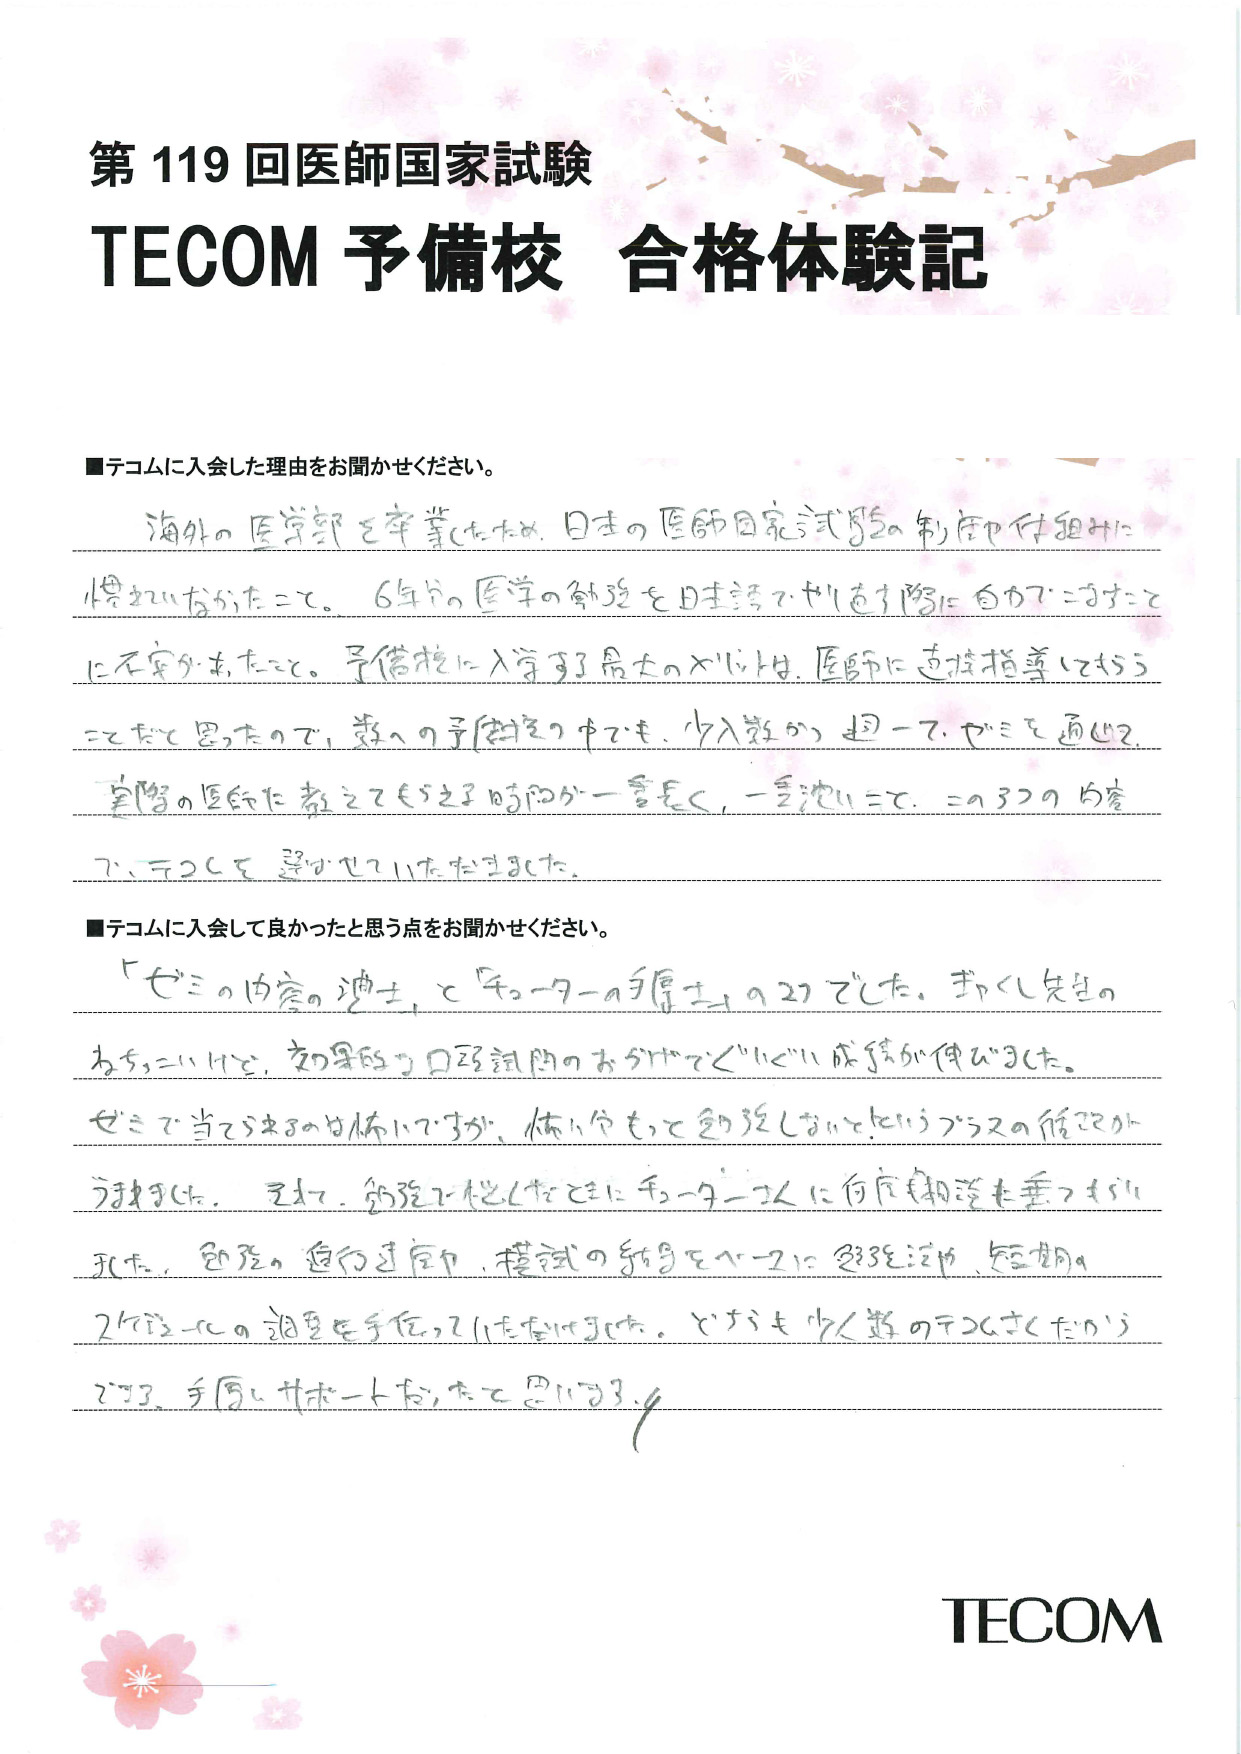 第 119 回医師国家試験
TECOM 予備校 合格体験記
■テコムに入会した理由をお聞かせください。
海外の医学部を卒業したため、日本の医師国家試験の制度や仕組みに
慣れていなかったこと。6年分の医学の勉強を日本語でやり直す際に自力でこなすこと
に不安があったこと。予備校に入学する最大のメリットは、医師に直接指導してもらう
ことだと思ったので、数々の予備校の中でも、少人数かつ週一で、ゼミを通じて、
実際の医師に教えてもらえる時間が一番長く、一番濃いこと、この3つの内容
で、テコムを選ばせていただきました。
■テコムに入会して良かったと思う点をお聞かせください。
「ゼミの内容の濃さ」と「チューターの手厚さ」の2つでした。ぎゃくし先生の
ねちっこいけど、効果的な口頭試問のおかげでぐいぐい成績が伸びました。
ゼミで当てられるのは怖いですが、怖い分もっと勉強しないと!というプラスの
うまれました。そして、勉強で忙しなときにチューターさんに何度も相談に乗ってもらい
ました。勉強の進行速度や、模試の結果をベースに勉強法や、短期の
スケジュールの調整を手伝っていただけました。どちらも少人数のテコムさんだから
できる、手厚いサポートだったと思いまる。
TECOM